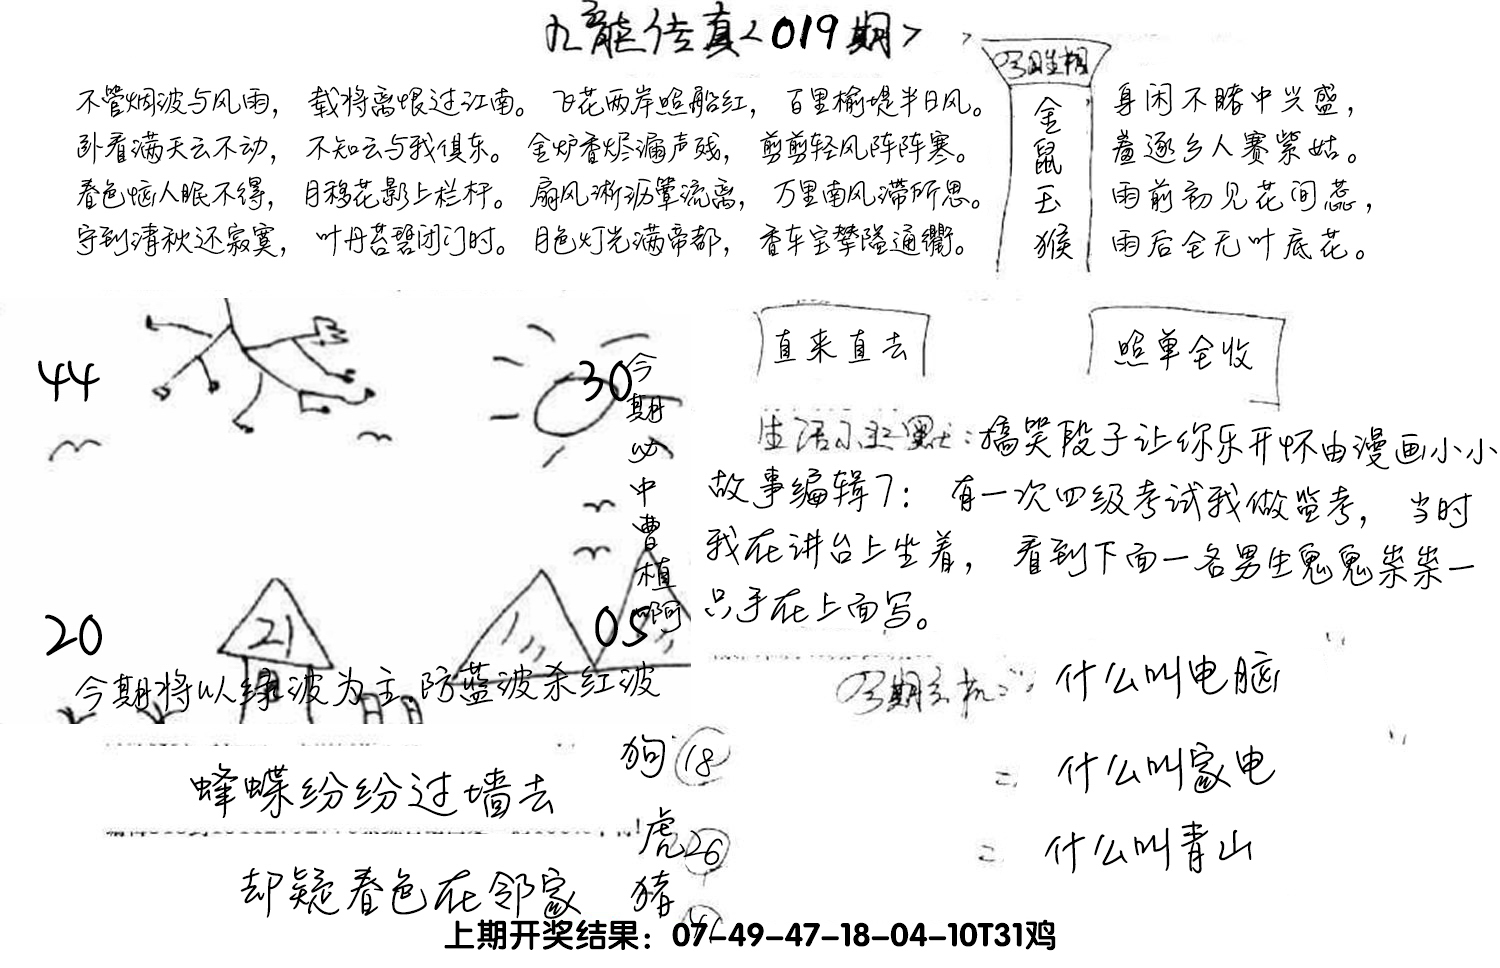 九龙传真<019期>
不管烟波与风雨，载将离恨过江南。飞花两岸照船红，百里榆堤半日风。
卧看满天云不动，不知云与我俱东。金炉香烬漏声残，剪剪轻风阵阵寒。
春色恼人眠不得，月移花影上栏杆。扇风淅沥簟流离，万里南风滞所思。
守到清秋还寂寞，叶丹苔碧闭门时。月色灯光满帝都，香车宝辇隘通衢。
今期生相
金
鼠
玉
猴
身闲不睹中兴盛，
羞逐乡人赛紫姑。
雨前初见花间蕊，
雨后全无叶底花。
44
30
今期必中曹植啊
20
21
05
今期将以绿波为主防蓝波杀红波
直来直去
照单全收
生活小幽默：搞笑段子让你乐开怀由漫画小小
故事编辑7：有一次四级考试我做监考，当时
我在讲台上坐着，看到下面一各男生鬼鬼祟祟一
只手在上面写。
今期玄机：什么叫电脑
= 什么叫家电
= 什么叫青山
蜂蝶纷纷过墙去
却疑春色在邻家
狗 18
虎 26
猪
上期开奖结果：07-49-47-18-04-10T31鸡